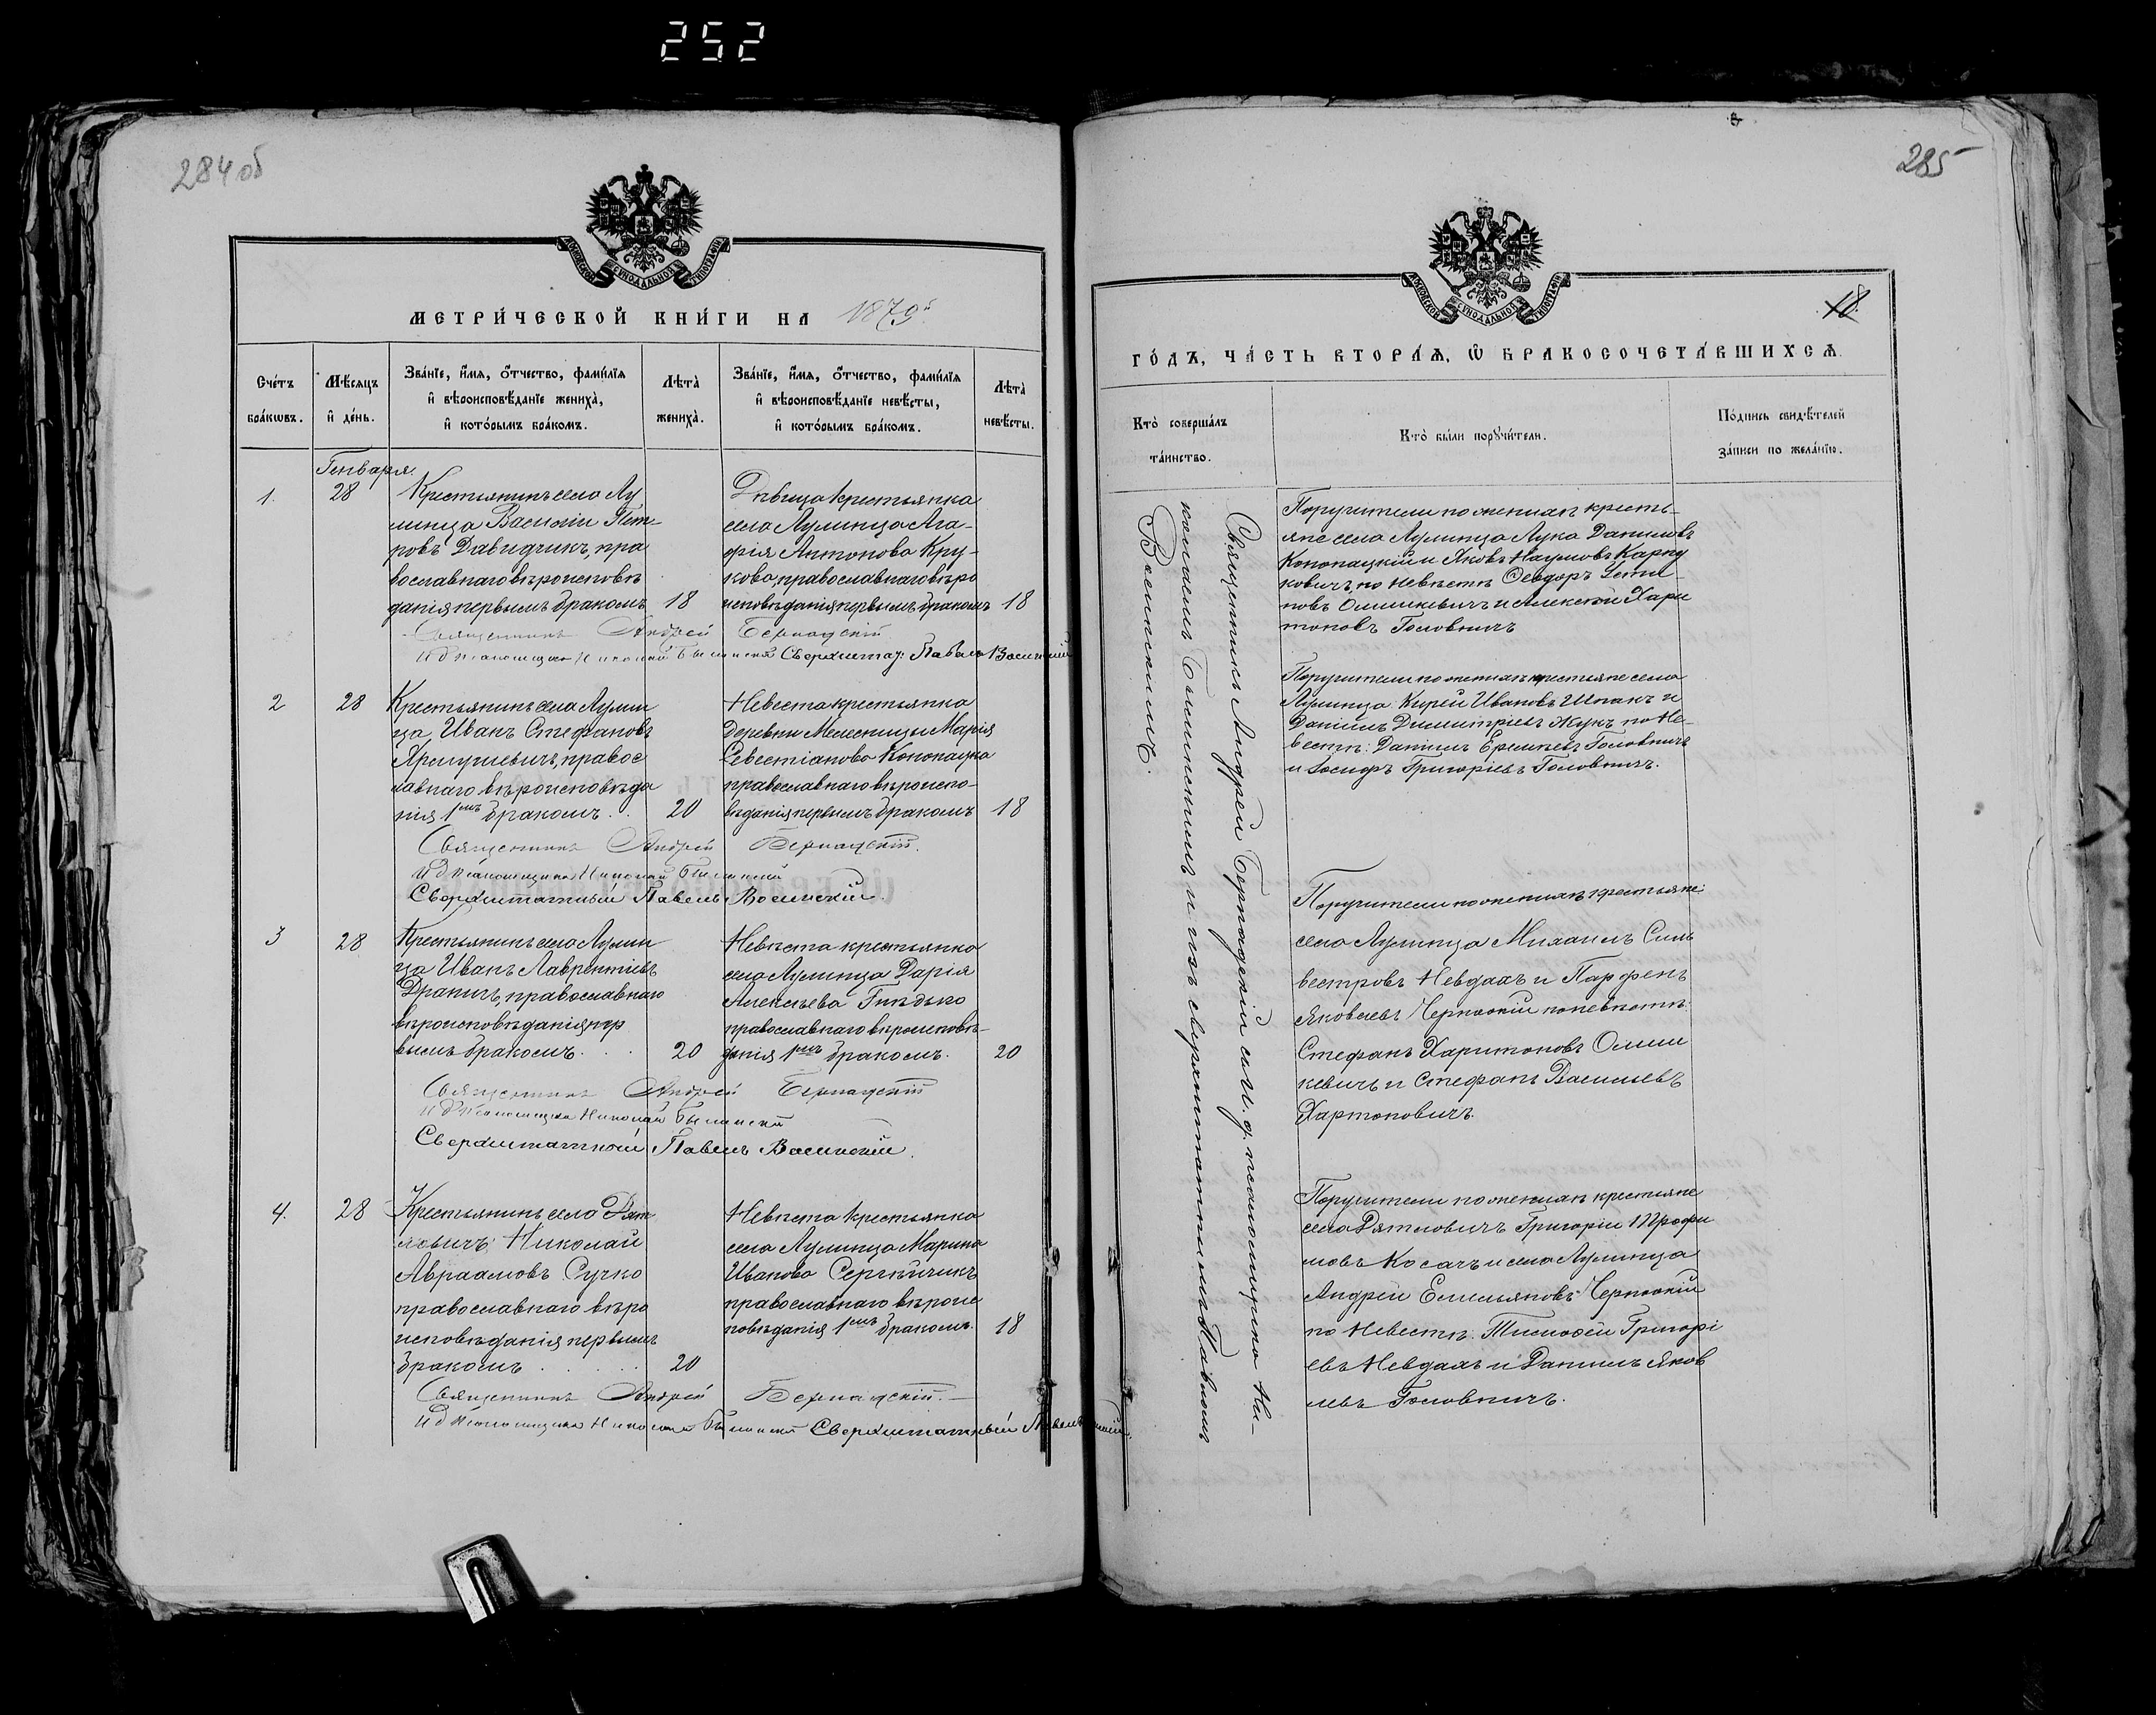 252
284 об
МОСКОВСКОЙ СѴНОДАЛЬНОЙ ТИПОГРАФІИ
МЕТРИ́ЧЕСКОЙ КНИ́ГИ НА 1879й
Сче́тъ бра́кѡвъ.
Мѣ́сяцъ и҆ де́нь.
Зва́нїе, и҆́мѧ, ѻ҆́тчество, фами́лїѧ и҆ вѣроисповѣ́данїе жениха̀, и҆ кото́рымъ бра́комъ.
Лѣта̀ жениха̀.
Зва́нїе, и҆́мѧ, ѻ҆́тчество, фами́лїѧ и҆ вѣроисповѣ́данїе невѣ́сты, и҆ кото́рымъ бра́комъ.
Лѣта̀ невѣ́сты.
Генваря
1.
28
Крестьянинъ села Лу
линца Василій Пет-
ровъ Давидчикъ, пра
вославнаго вѣроисповѣ
данія первымъ бракомъ
18
Дѣвица крестьянка
села Лулинца Ага-
фія Антонова Кру-
кова православнаго вѣро
исповѣданія первымъ бракомъ
18
Священникъ Андрей Бернадскій
И д Псаломщика Николай Былинскій Сверхштат: Павелъ Волынскій
2
28
Крестьянинъ села Лулин
ца Иванъ Стефановъ
Ярмушевичъ, правос
лавнаго вѣроисповѣда
нія 1мъ бракомъ . .
20
Невеста крестьянка
деревни Мелесницы Марія
Севестіанова Конопацка
православнаго вѣроиспо-
вѣданія первымъ бракомъ
18
Священникъ Андрей Бернадскій.
И д Псаломщика Николай Былинскій
Сверхштатный Павелъ Волынскій.
3
28
Крестьянинъ села Лулин
ца Иванъ Лаврентіевъ
Драничъ, православнаго
вѣроисповѣданія пер
вымъ бракомъ . . .
20
Невѣста крестьянка
села Лулинца Дарія
Алексѣева Гнѣдько
православнаго вѣроисповѣ-
данія 1мъ бракомъ.
20
Священникъ Андрей Бернадскій
И д Псаломщика Николай Былинскій
Сверхштатный Павелъ Волынскій.
4.
28
Крестьянинъ села Дят
ловичъ Николай
Авраамовъ Сучко
православнаго вѣро
исповѣданія первымъ
бракомъ . . . . .
20
Невѣста крестьянка
села Лулинца Марина
Иванова Сергѣйчикъ
православнаго вѣроис
повѣданія 1мъ бракомъ.
18
Священникъ Андрей Бернадскій.
И д Псаломщика Николай Былинскій Сверхштатный Павелъ
285
МОСКОВСКОЙ СѴНОДАЛЬНОЙ ТИПОГРАФІИ
18.
ГО́ДЪ, ЧА́СТЬ ВТОРА́Ѧ, Ѽ БРАКОСОЧЕТА́ВШИХСѦ.
Кто̀ соверша́лъ та́инство.
Кто̀ бы́ли порꙋчи́тели.
По́дпись свидѣ́телей за́писи по жела́нїю.
Священникъ Андрей Бернадскій съ и. д. псаломщика Ни-
колаемъ Былинскимъ и съ сверхштатнымъ Павломъ
Волынскимъ.
Поручители по женихѣ кресть-
яне села Лулинца Лука Даниловъ
Конопацкій и Яковъ Наумовъ Карпу
ковичъ, по невѣстѣ Ѳеодоръ
новъ Олишкевичъ и Алексѣй Хари
тоновъ Головничъ
Поручители по женихѣ крестьяне села
Лулинца Кирей Ивановъ Шпакъ и
Даніилъ Димитріевъ Жукъ по Не-
вестѣ: Даніилъ Еремѣевъ Головничъ
и Іосифъ Григоріевъ Головничъ.
Поручители по женихѣ крестьяне:
села Лулинца Михаилъ Силь
вестровъ Невдахъ и Парфенъ
Яковлевъ Чернокій по невѣстѣ:
Стефанъ Харитоновъ Олиш
кевичъ и Стефанъ Васильевъ
Хартоновичъ.
Поручители по женихѣ крестьяне
села Дятловичъ Григорій Трофи
мовъ Косачъ и села Лулинца
Андрей Емельяновъ Чернокій
по Невестѣ: Тимоѳей Григорі
евъ Невдахъ и Даніилъ Яков
левъ Головничъ.